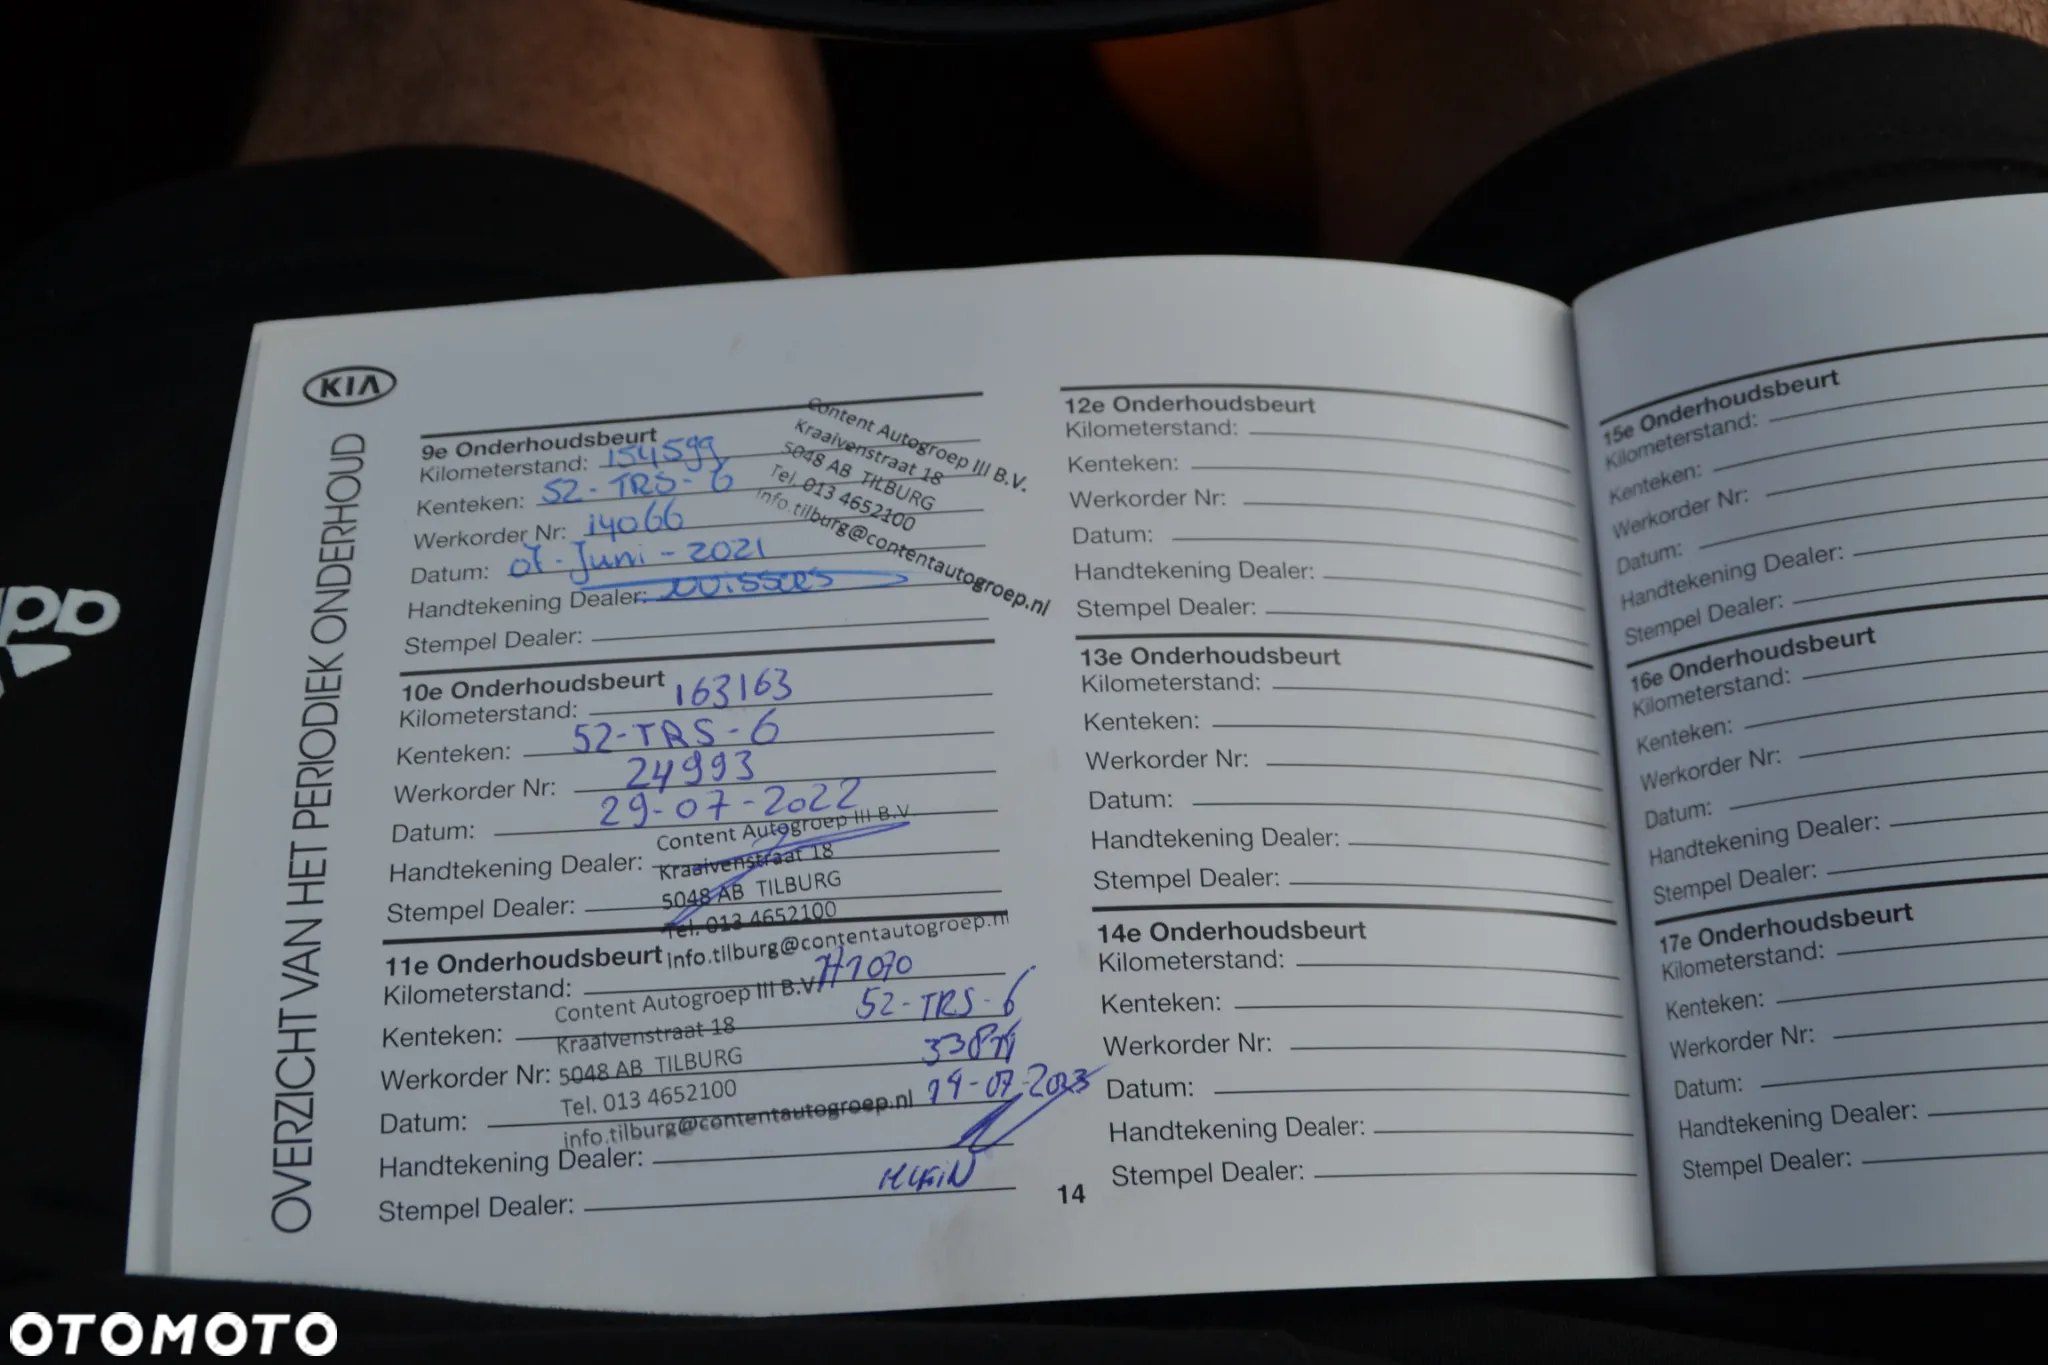 KIA
OVERZICHT VAN HET PERIODIEK ONDERHOUD
9e Onderhoudsbeurt
Kilometerstand: 154599
Kenteken: 52-TRS-6
Werkorder Nr: 14066
Datum: 07-Juni-2021
Handtekening Dealer:
Stempel Dealer:
Content Autogroep III B.V.
Kraaivenstraat 18
5048 AB TILBURG
Tel. 013 4652100
info.tilburg@contentautogroep.nl
10e Onderhoudsbeurt
Kilometerstand: 163163
Kenteken: 52-TRS-6
Werkorder Nr: 24993
Datum: 29-07-2022
Handtekening Dealer:
Stempel Dealer:
Content Autogroep III B.V.
Kraaivenstraat 18
5048 AB TILBURG
Tel. 013 4652100
info.tilburg@contentautogroep.nl
11e Onderhoudsbeurt
Kilometerstand:
Kenteken: 52-TRS-6
Werkorder Nr:
Datum:
Handtekening Dealer:
Stempel Dealer:
Content Autogroep III B.V.
Kraaivenstraat 18
5048 AB TILBURG
Tel. 013 4652100
info.tilburg@contentautogroep.nl
12e Onderhoudsbeurt
Kilometerstand:
Kenteken:
Werkorder Nr:
Datum:
Handtekening Dealer:
Stempel Dealer:
13e Onderhoudsbeurt
Kilometerstand:
Kenteken:
Werkorder Nr:
Datum:
Handtekening Dealer:
Stempel Dealer:
14e Onderhoudsbeurt
Kilometerstand:
Kenteken:
Werkorder Nr:
Datum:
Handtekening Dealer:
Stempel Dealer:
14
15e Onderhoudsbeurt
Kilometerstand:
Kenteken:
Werkorder Nr:
Datum:
Handtekening Dealer:
Stempel Dealer:
16e Onderhoudsbeurt
Kilometerstand:
Kenteken:
Werkorder Nr:
Datum:
Handtekening Dealer:
Stempel Dealer:
17e Onderhoudsbeurt
Kilometerstand:
Kenteken:
Werkorder Nr:
Datum:
Handtekening Dealer:
Stempel Dealer:
OTOMOTO